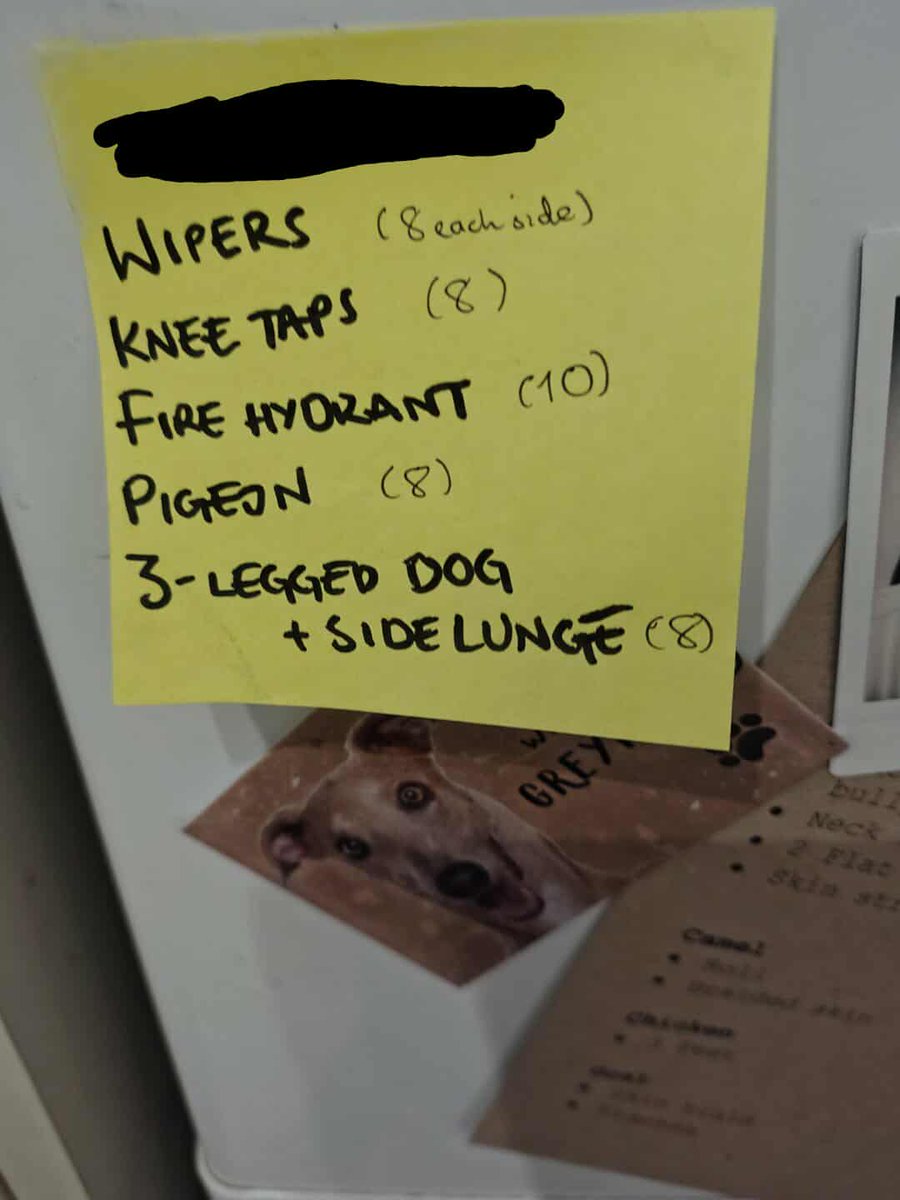 WIPERS (8 each side)
KNEE TAPS (8)
FIRE HYDRANT (10)
PIGEON (8)
3-LEGGED DOG
+ SIDE LUNGE (8)
GREY
bull
Neck
2 Flat
Skin
Camel
Chicken